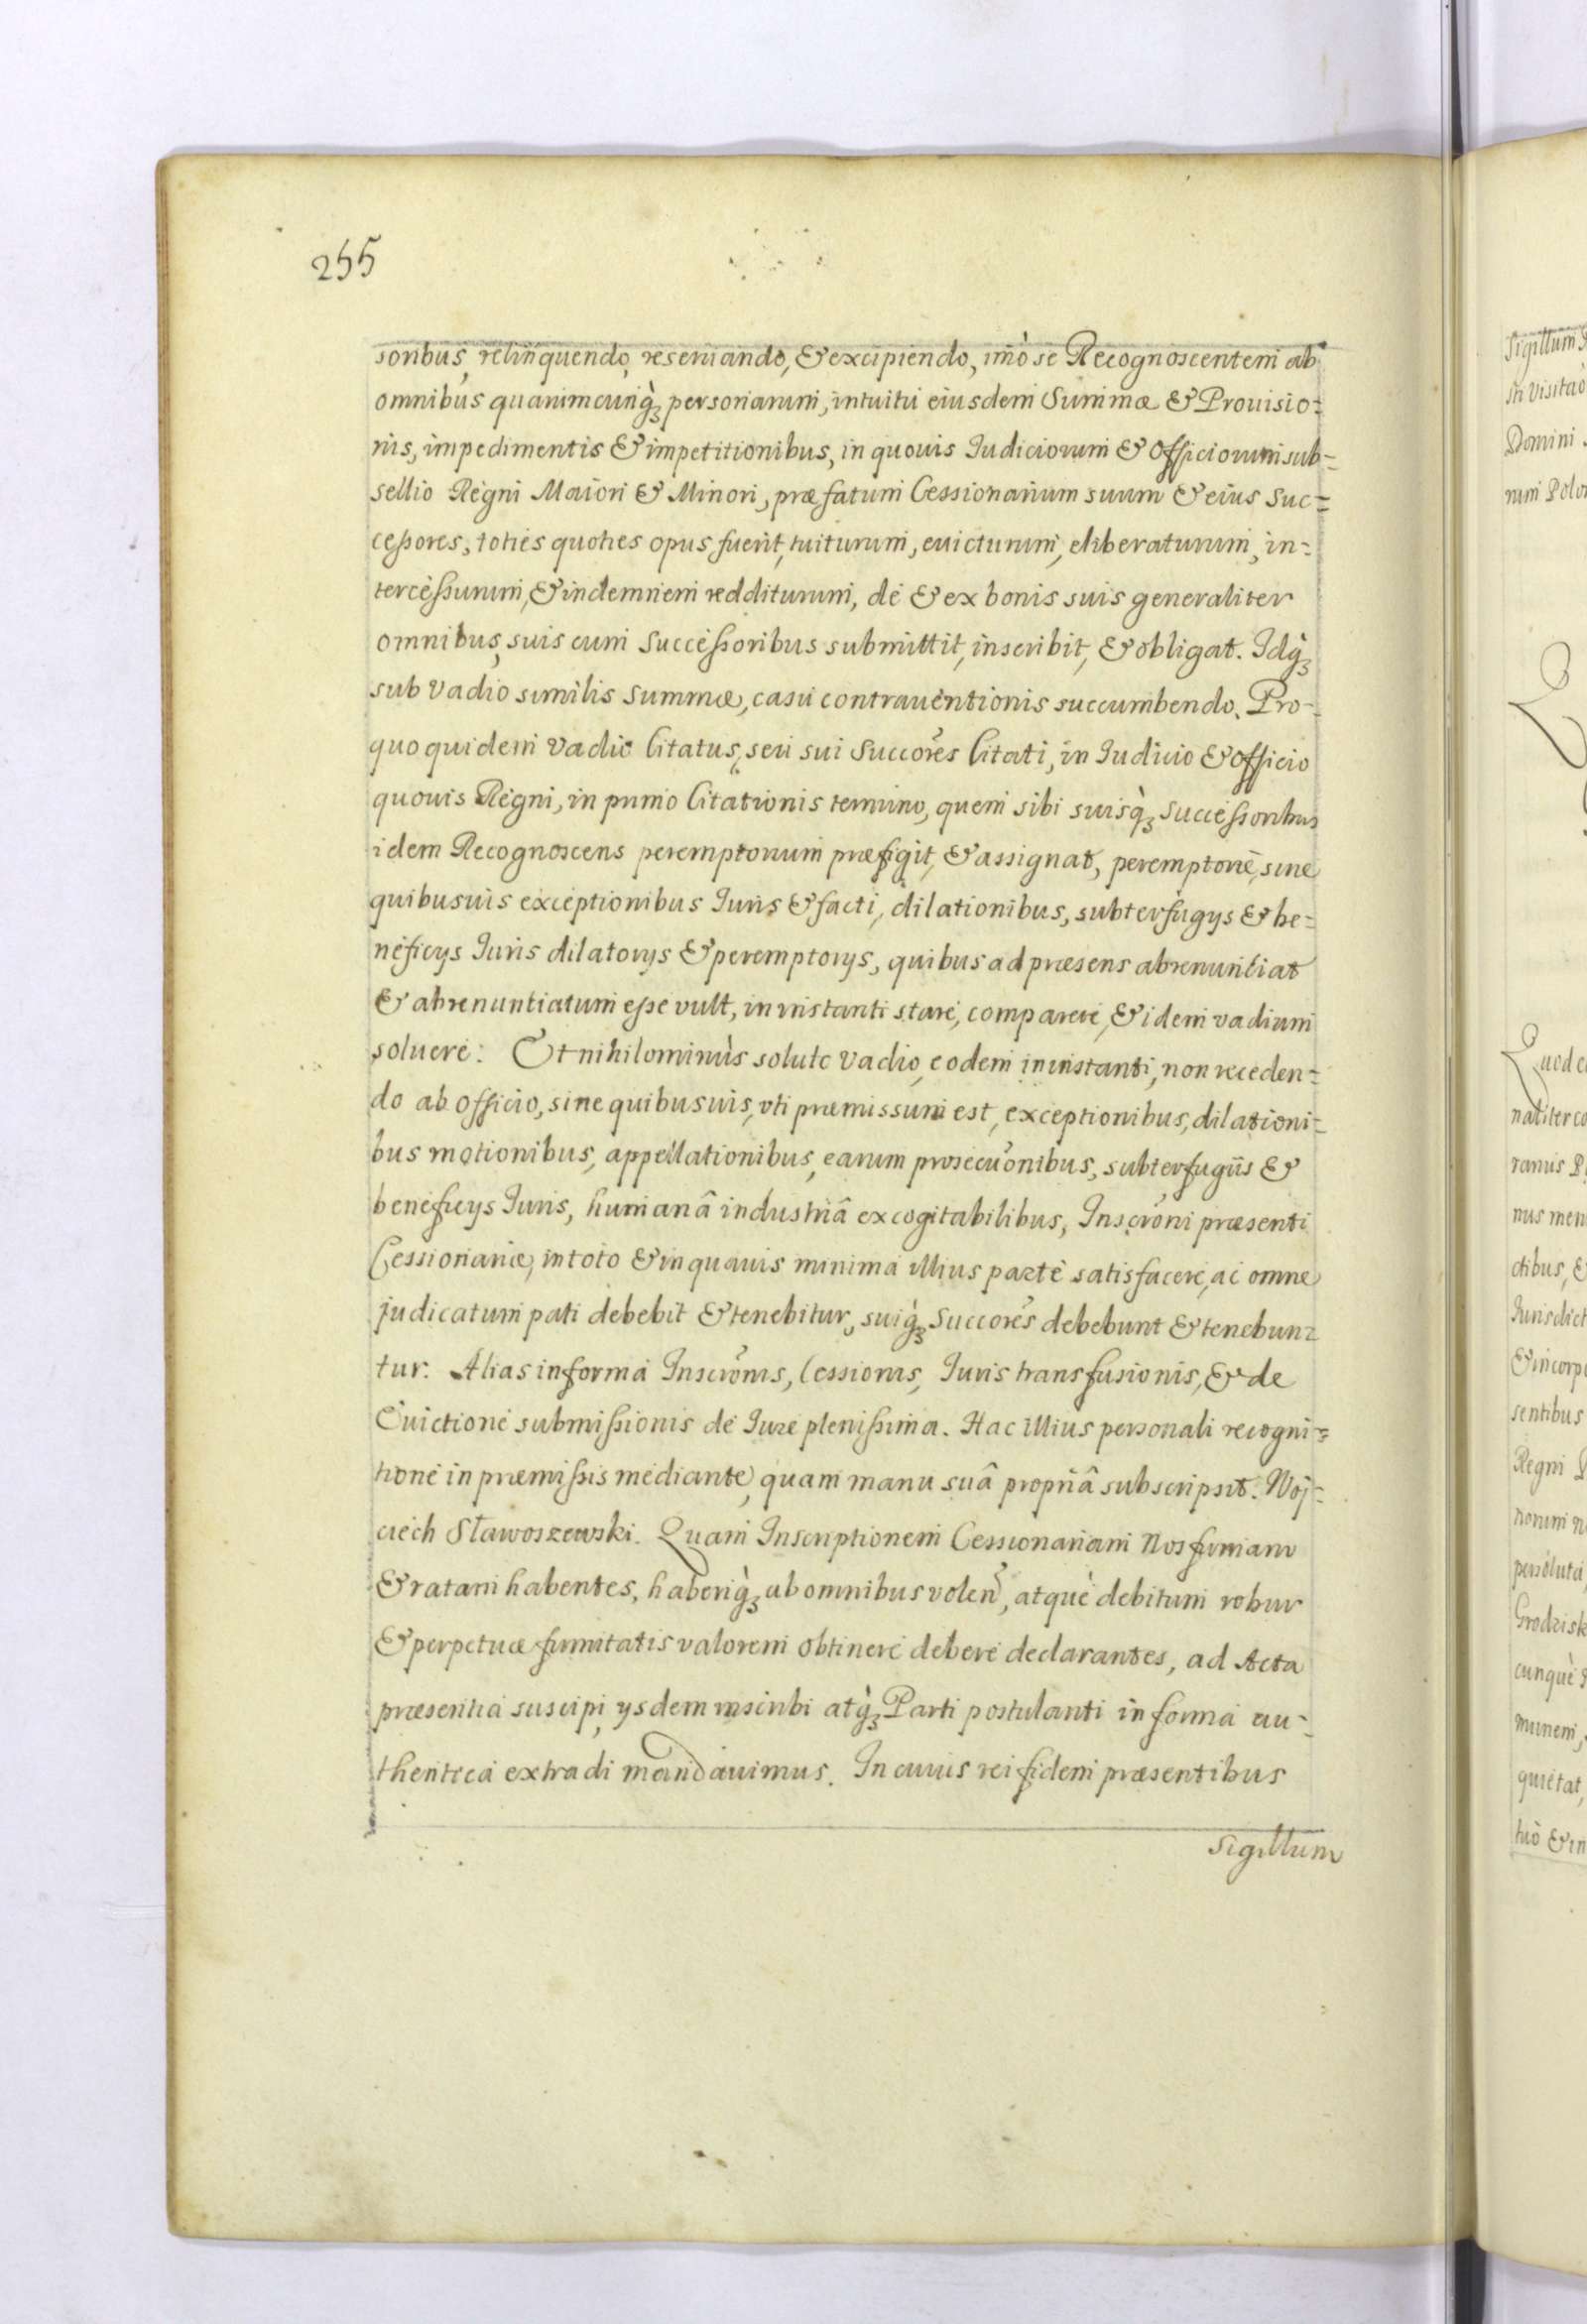 255
soribus, relinquendo, reseruando, & excipiendo, imò se Recognoscentem ab
omnibus quarumcunq̀ꝫ personarum, intuitu eiusdem Summæ & Prouisio=
nis, impedimentis & impetitionibus, in quouis Iudiciorum & Officiorum sub=
sellio Regni Maiori & Minori, præfatum Cessionarium suum & eius Suc=
cessores, toties quoties opus fuerit, tuiturum, euicturum, eliberaturum, in=
tercessurum, & indemnem redditurum, de & ex bonis suis generaliter
omnibus, suis cum Successoribus submittit, inscribit, & obligat. Idq̀ꝫ
sub vadio similis Summæ, casu contrauentionis succumbendo. Pro-
quo quidem Vadio Citatus, seu sui Succores Citati, in Iudicio & Officio
quouis Regni, in primo Citationis termino, quem sibi suisq̀ꝫ Successoribus
idem Recognoscens peremptorium præfigit, & assignat, peremptoriè, sine
quibusuis exceptionibus Iuris & facti, dilationibus, subterfugys & be=
neficys Iuris dilatorys & peremptorys, quibus ad præsens abrenuntiat
& abrenuntiatum esse vult, in instanti stare, comparere, & idem vadium
soluere: Et nihilominùs soluto Vadio, eodem in instanti, non receden=
do ab officio, sine quibusuis, vti præmissum est, exceptionibus, dilationi=
bus motionibus, appellationibus, earum prosecuonibus, subterfugiis &
beneficys Iuris, humanâ industriâ excogitabilibus, Inscroni præsenti
Cessionariæ, in toto & in quauis minima illius parte satisfacere, ac omne
judicatum pati debebit & tenebitur, suiq̀ꝫ Succores debebunt & tenebun=
tur. Alias in forma Inscronis, Cessionis, Iuris transfusionis, & de
Euictione submissionis de Iure plenissima. Hac illius personali recogni=
tione in præmissis mediante, quam manu suâ propriâ subscripsit. Woj=
ciech Sławoszewski. Quam Inscriptionem Cessionariam Nos firmam
& ratam habentes, haberiq̀ꝫ ab omnibus volen, atquè debitum robur
& perpetuæ firmitatis valorem obtinere debere declarantes, ad Acta
præsentia suscipi, ysdem inscribi atq̀ꝫ Parti postulanti in forma au=
thentica extradi mandauimus. In cuius rei fidem præsentibus
Sigillum